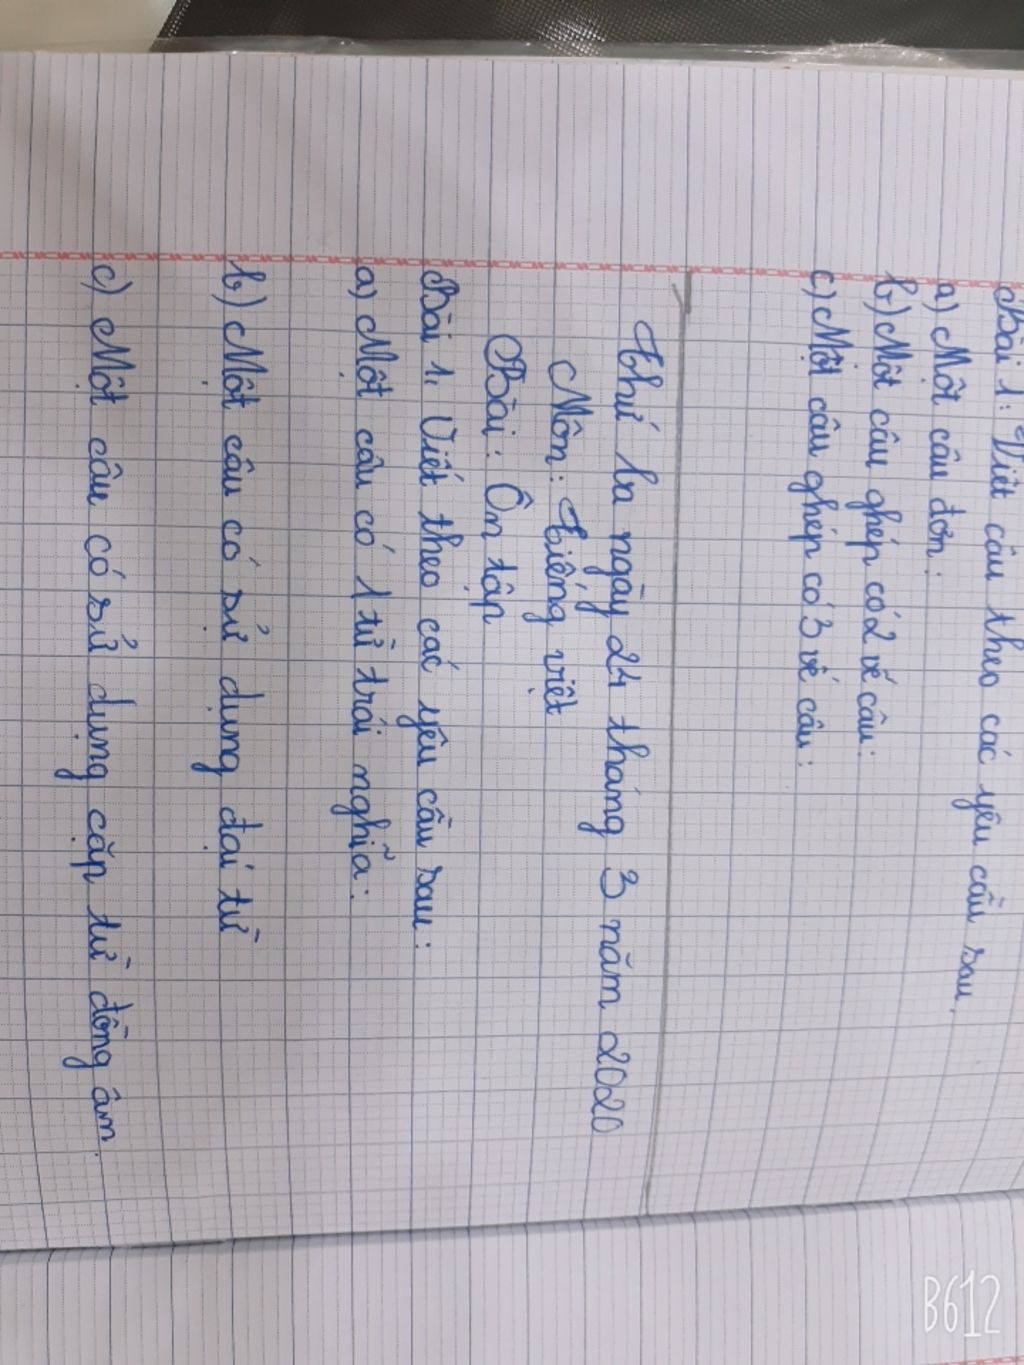 Bài 1: Viết câu theo các yêu cầu sau.
a) Một câu đơn:
b) Một câu ghép có 2 vế câu:
c) Một câu ghép có 3 vế câu:
Thứ ba ngày 24 tháng 3 năm 2020
Môn: Tiếng việt
Bài: Ôn tập
Bài 1. Viết theo các yêu cầu sau:
a) Một câu có 1 từ trái nghĩa:
b) Một câu có sử dụng đại từ
c) Một câu có sử dụng cặp từ đồng âm.
B612